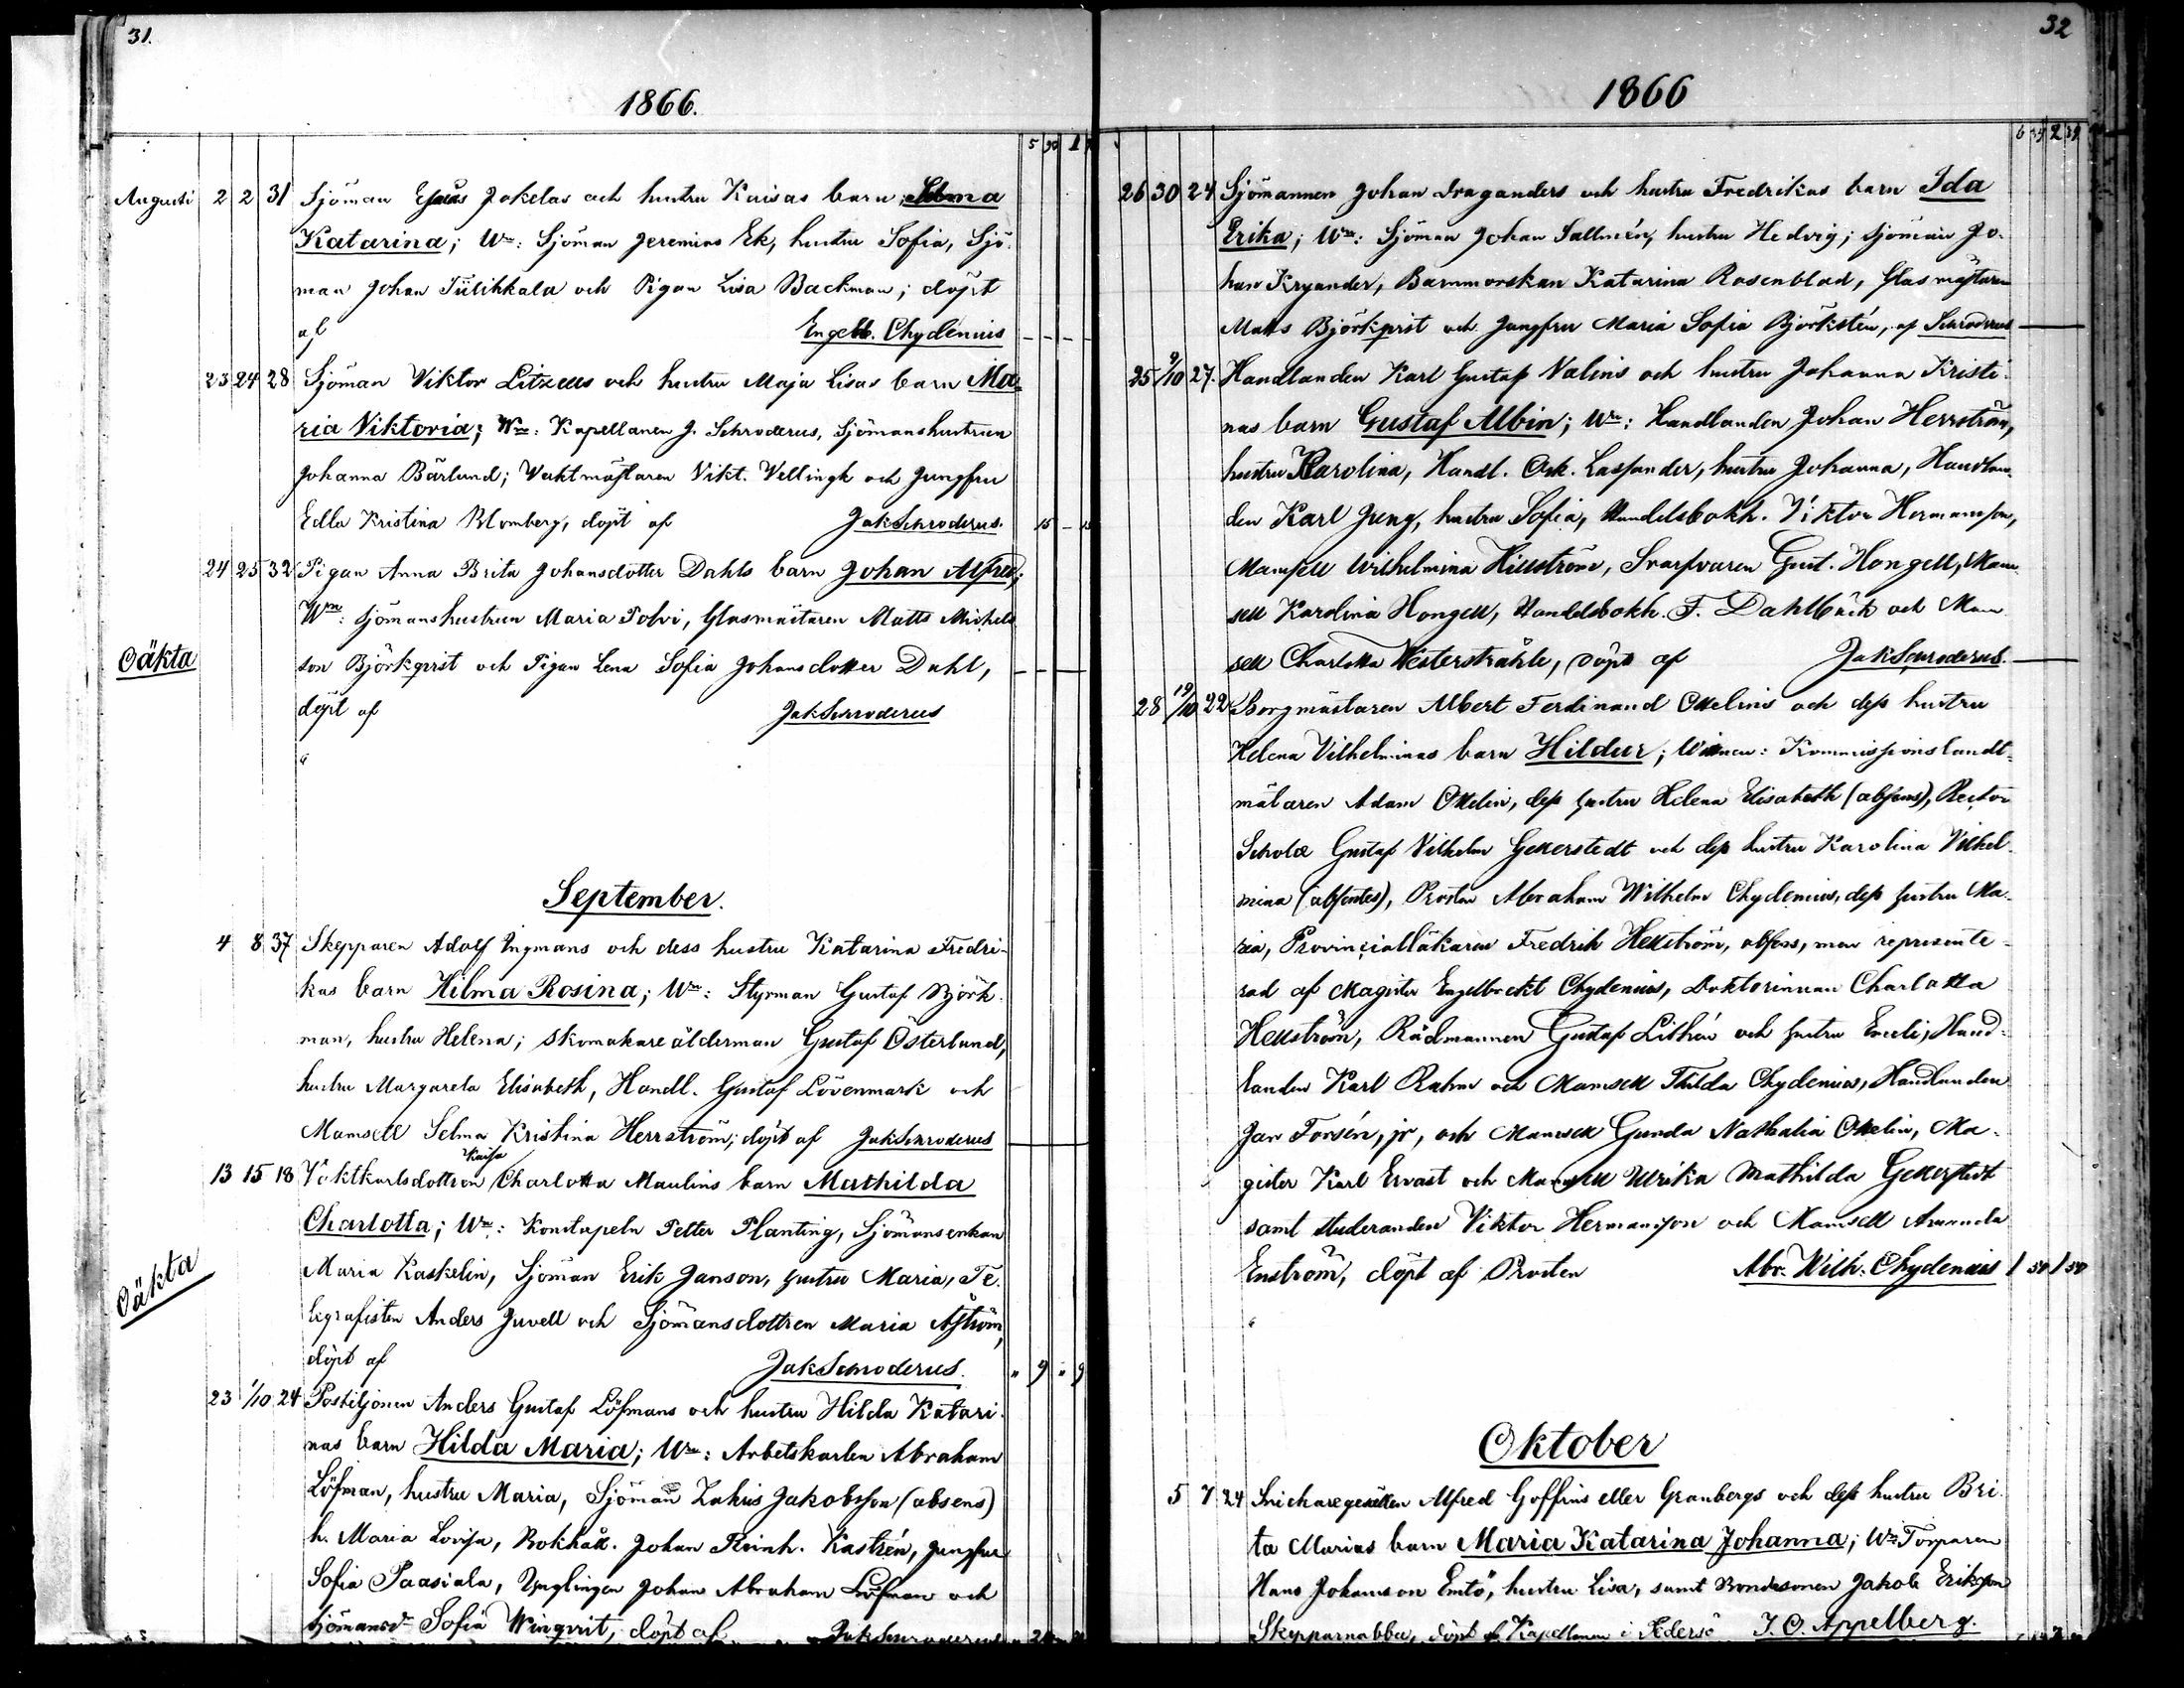 31.
1866.
5 90 1
Augusti 2 2 31 Sjöman Esaias Jokelas och hustru Kaisas barn Selma
Katarina; Wn: Sjöman Jeremias Ek, hustru Sofia, Sjö-
man Johan Tülikkala och Pigan Lisa Backman; döpt
af Engelb. Chydenius
23 24 28 Sjöman Viktor Litzeus och hustru Maja Lisas barn Ma-
ria Viktoria; Wn: Kapellanen J. Schroderus, Sjömanshustrun
Johanna Bärlund; Vaktmästaren Vikt. Vellingk och Jungfru
Edla Kristina Blomberg, döpt af Jak Schroderus. 15 - 15
24 25 32 Pigan Anna Brita Johansdotter Dahls barn Johan Alfred;
Wn: sjömanshustrun Maria Polvi, Glasmästaren Matts Michels
Oäkta son Björkqvist och Pigan Lena Sofia Johansdotter Dahl,
döpt af Jak Schroderus
September.
4 8 37 Skepparen Adolf Ingmans och dess hustru Katarina Fredri-
kas barn Hilma Rosina; Wn: Styrman Gustaf Björk-
man, hustru Helena; Skomakareålderman Gustaf Österlund,
hustru Margareta Elisabeth, Handl. Gustaf Lövenmark och
Mamsell Selma Kristina Herrström; döpt af Jak Schroderus
Kaisa
13 15 18 Vaktkarlsdottren Charlotta Maulins barn Mathilda
Charlotta; Wn: Konstapeln Petter Planting, Sjömansenkan
Oäkta Maria Kaskelin, Sjöman Erik Janson, hustru Maria, Te-
legrafisten Anders Juvell och Sjömansdottren Maria Åström,
döpt af Jak Schroderus. " 9 " 9
23 1/10 24 Postiljonen Anders Gustaf Löfmans och hustru Hilda Katari-
nas barn Hilda Maria; Wn: Arbetskarlen Abraham
Löfman, hustru Maria, Sjöman Zakris Jakobsson (absens)
h. Maria Lovisa, Bokhåll. Johan Reinh. Kastrén, Jungfru
Sofia Paasiala, Ynglingen Johan Abraham Löfman och
Sjömansd. Sofia Winqvist, döpt af Jak Schroderus
32
1866
6 39 2 39
26 30 24 Sjömannen Johan Draganders och hustru Fredrikas barn Ida
Erika; Wn: Sjöman Johan Sallmén, hustru Hedvig; sjöman Jo-
han Kryander, Barnmorskan Katarina Rosenblad, Glasmästaren
Matts Björkqvist och Jungfru Maria Sofia Björkstén, af Schroderus
25 9/10 27. Handlanden Karl Gustaf Nalins och hustru Johanna Kristi-
nas barn Gustaf Albin; Wn: Handlanden Johan Herrström,
hustru Karolina, Handl. Osk. Lassander, hustru Johanna, Handlan-
den Karl Jung, hustru Sofia, Handelsbokh. Viktor Hermanson,
Mamsell Wilhelmina Hellström, Svarfvaren Gust. Hongell, Mam-
sell Karolina Hongell, Handelsbokh. F. Dahlbäck och Mam-
sell Charlotta Westerstråhle, döpt af Jak Schroderus.
28 19/10 22 Borgmästaren Albert Ferdinand Ottelins och dess hustru
Helena Vilhelminas barn Hildur; Wittnen: Kommissionslandt-
mätaren Adam Ottelin, dess hustru Helena Elisabeth (absens), Rector
Scholæ Gustaf Vilhelm Gellerstedt och dess hustru Karolina Vilhel-
mina (absentes), Prosten Abraham Wilhelm Chydenius, dess hustru Ma-
ria, Provinçialläkaren Fredrik Hellström, absens, men represente-
rad af Magister Engelbrekt Chydenius, Doktorinnan Charlotta
Hellström, Rådmannen Gustaf Lithén och hustru Emeli, Hand-
landen Karl Rahm och Mamsell Thilda Chydenius, Handlanden
Jan Forsén, jr, och Mamsell Gunda Nathalia Ottelin, Ma-
gister Karl Ervast och Mamsell Ulrika Mathilda Gellerstedt
samt studeranden Viktor Hermanson och Mamsell Amanda
Enström, döpt af Prosten Abr. Wilh. Chydenius 1 50 1 50
Oktober
5 7 24 Snickaregesällen Alfred Goffins eller Granbergs och dess hustru Bri-
ta Marias barn Maria Katarina Johanna; Wn: Torparen
Hans Johanson Emtö, hustru Lisa, samt Bondesonen Jakob Erikson
Skepparnabba, döpt af Kapellanen i Pedersö J. O. Appelberg.